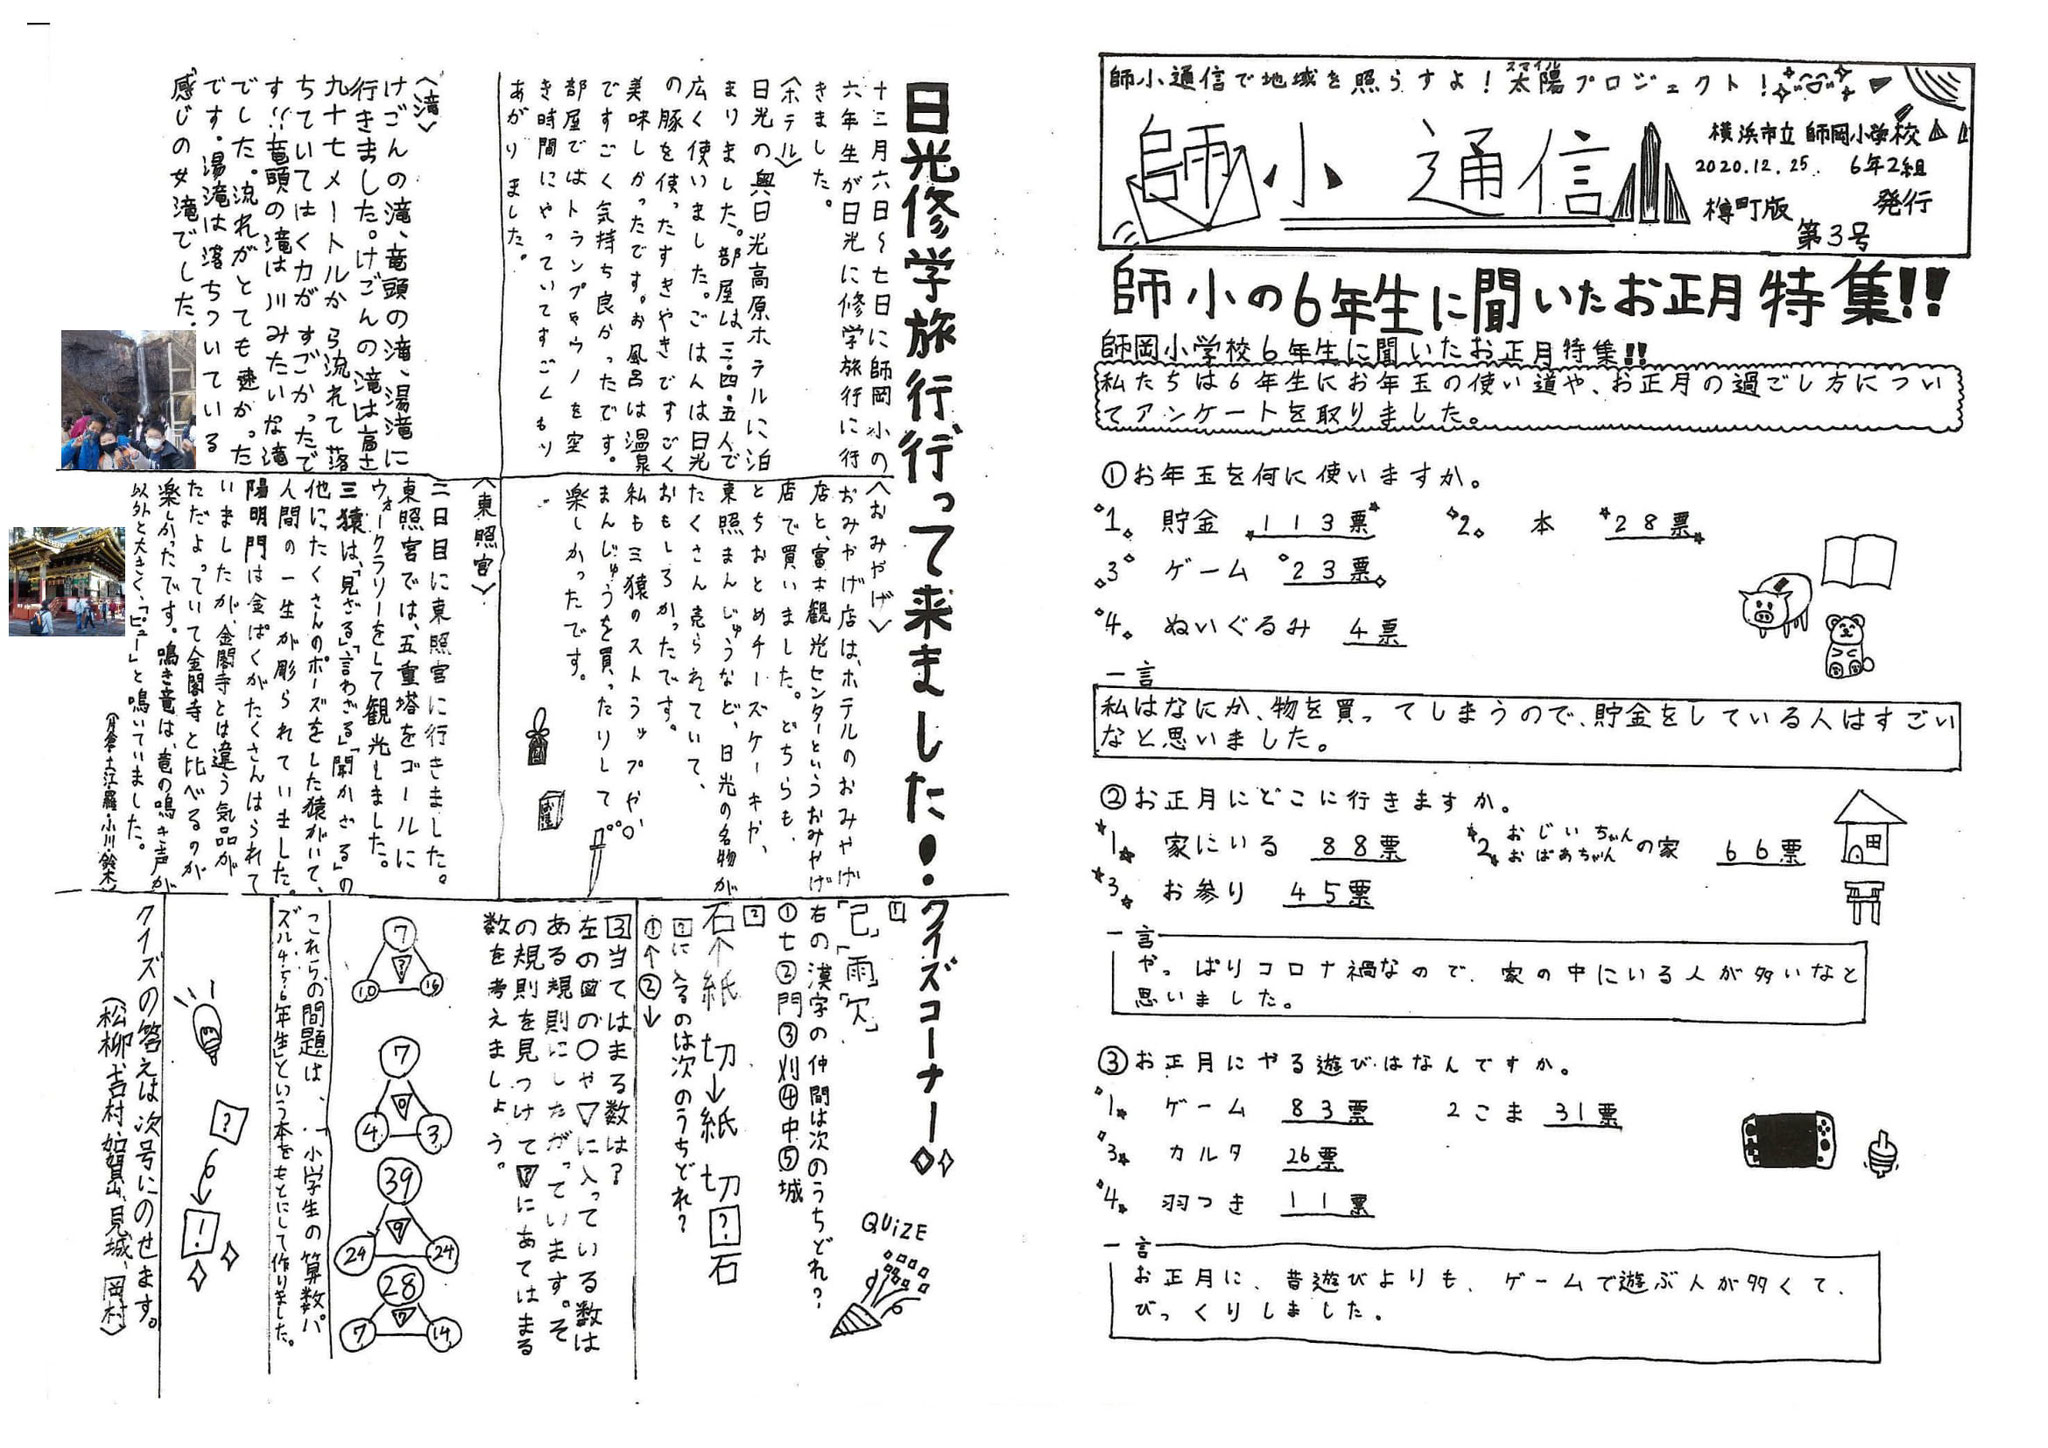 師小通信で地域を照らすよ!太陽プロジェクト!
スマイル
師小通信
横浜市立 師岡小学校
2020.12.25. 6年2組
樽町版 発行
第3号
師小の6年生に聞いたお正月特集!!
師岡小学校6年生に聞いたお正月特集!!
私たちは6年生にお年玉の使い道や、お正月の過ごし方につい
てアンケートを取りました。
①お年玉を何に使いますか。
1. 貯金 113票 2. 本 28票
3. ゲーム 23票
4. ぬいぐるみ 4票
一言
私はなにか、物を買ってしまうので、貯金をしている人はすごい
なと思いました。
②お正月にどこに行きますか。
1. 家にいる 88票 2. おじいちゃんおばあちゃんの家 66票
3. お参り 45票
一言
やっぱりコロナ禍なので、家の中にいる人が多いなと
思いました。
③お正月にやる遊びはなんですか。
1. ゲーム 83票 2 こま 31票
3. カルタ 26票
4. 羽つき 11票
一言
お正月に、昔遊びよりも、ゲームで遊ぶ人が多くて、
びっくりしました。
日光修学旅行行って来ました!
十二月六日〜七日に師岡小の
六年生が日光に修学旅行に行
きました。
〈ホテル〉
日光の奥日光高原ホテルに泊
まりました。部屋は三・四・五人で
広く使いました。ごはんは日光
の豚を使ったすきやきですごく
美味しかったです。お風呂は温泉
ですごく気持ち良かったです。
部屋ではトランプやウノを空
き時間にやっていてすごくもり
あがりました。
〈滝〉
けごんの滝、竜頭の滝、湯滝に
行きました。けごんの滝は高さ
九十七メートルから流れて落
ちていてはく力がすごかったで
す!!竜頭の滝は川みたいな滝
でした。流れがとても速かった
です。湯滝は落ちついている
感じの女滝でした。
〈おみやげ〉
おみやげ店は、ホテルのおみやげ
店と、富士観光センターというおみやげ
店で買いました。どちらも、
とちおとめチーズケーキや、
東照まんじゅうなど、日光の名物が
たくさん売られていて、
おもしろかったです。
私も三猿のストラップや、
まんじゅうを買ったりして
楽しかったです。
〈東照宮〉
二日目に東照宮に行きました。
東照宮では、五重塔をゴールに
ウォークラリーをして観光しました。
三猿は、「見ざる」「言わざる」「聞かざる」の
他にたくさんのポーズをした猿がいて、
人間の一生が彫られていました。
陽明門は金ぱくがたくさんはられて
いましたが、金閣寺とは違う気品が
ただよっていて金閣寺と比べるのが
楽しかったです。鳴き竜は、竜の鳴き声が
以外と大きく、「ピュー」と鳴いていました。
クイズコーナー
QUiZE
1
「己」「雨」「欠」
右の漢字の仲間は次のうちどれ?
①七②門③刈④中⑤城
2
石↑紙 切↓紙 切?石
?に入るのは次のうちどれ?
①↑②↓
3当てはまる数は?
左の図の○や▽に入っている数は
ある規則にしたがっています。そ
の規則を見つけて?にあてはまる
数を考えましょう。
7
?
10 16
7
0
4 3
39
9
29 24
28
7
7 14
これらの問題は、「小学生の算数パ
ズル4・5・6年生」という本をもとにして作りました。
?
!
クイズの答えは次号にのせます。